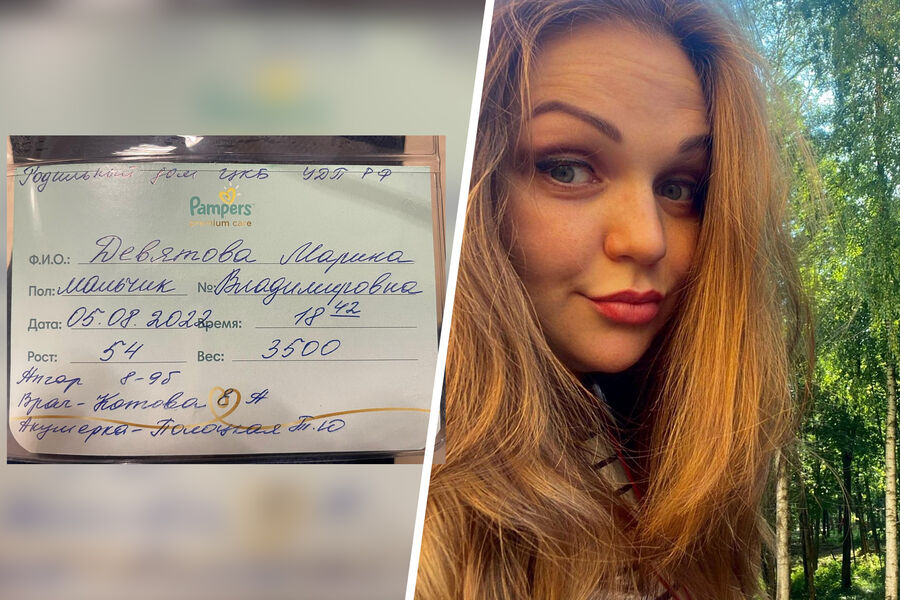 Родильный дом ЦКБ УДП РФ
Pampers
premium care
Ф.И.О.: Девятова Марина
Пол: Мальчик № Владимировна
Дата: 05.08.2022 Время: 18 42
Рост: 54 Вес: 3500
Апгар 8-9б
Врач- Котова Е А
Акушерка- Полоцкая Т.Ю